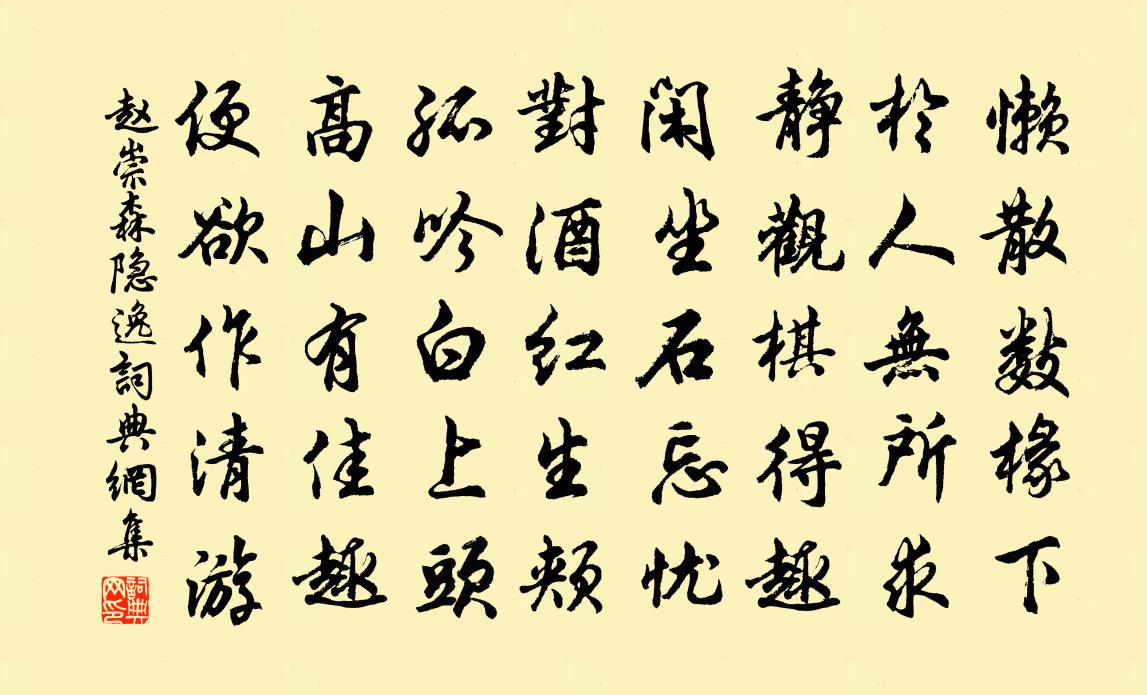 懒散数椽下
於人無所求
静觀棋得趣
闲坐石忘忧
對酒红生颊
孤吟白上頭
高山有佳趣
便欲作清游
赵崇森隐逸詞典網集
詞典网印